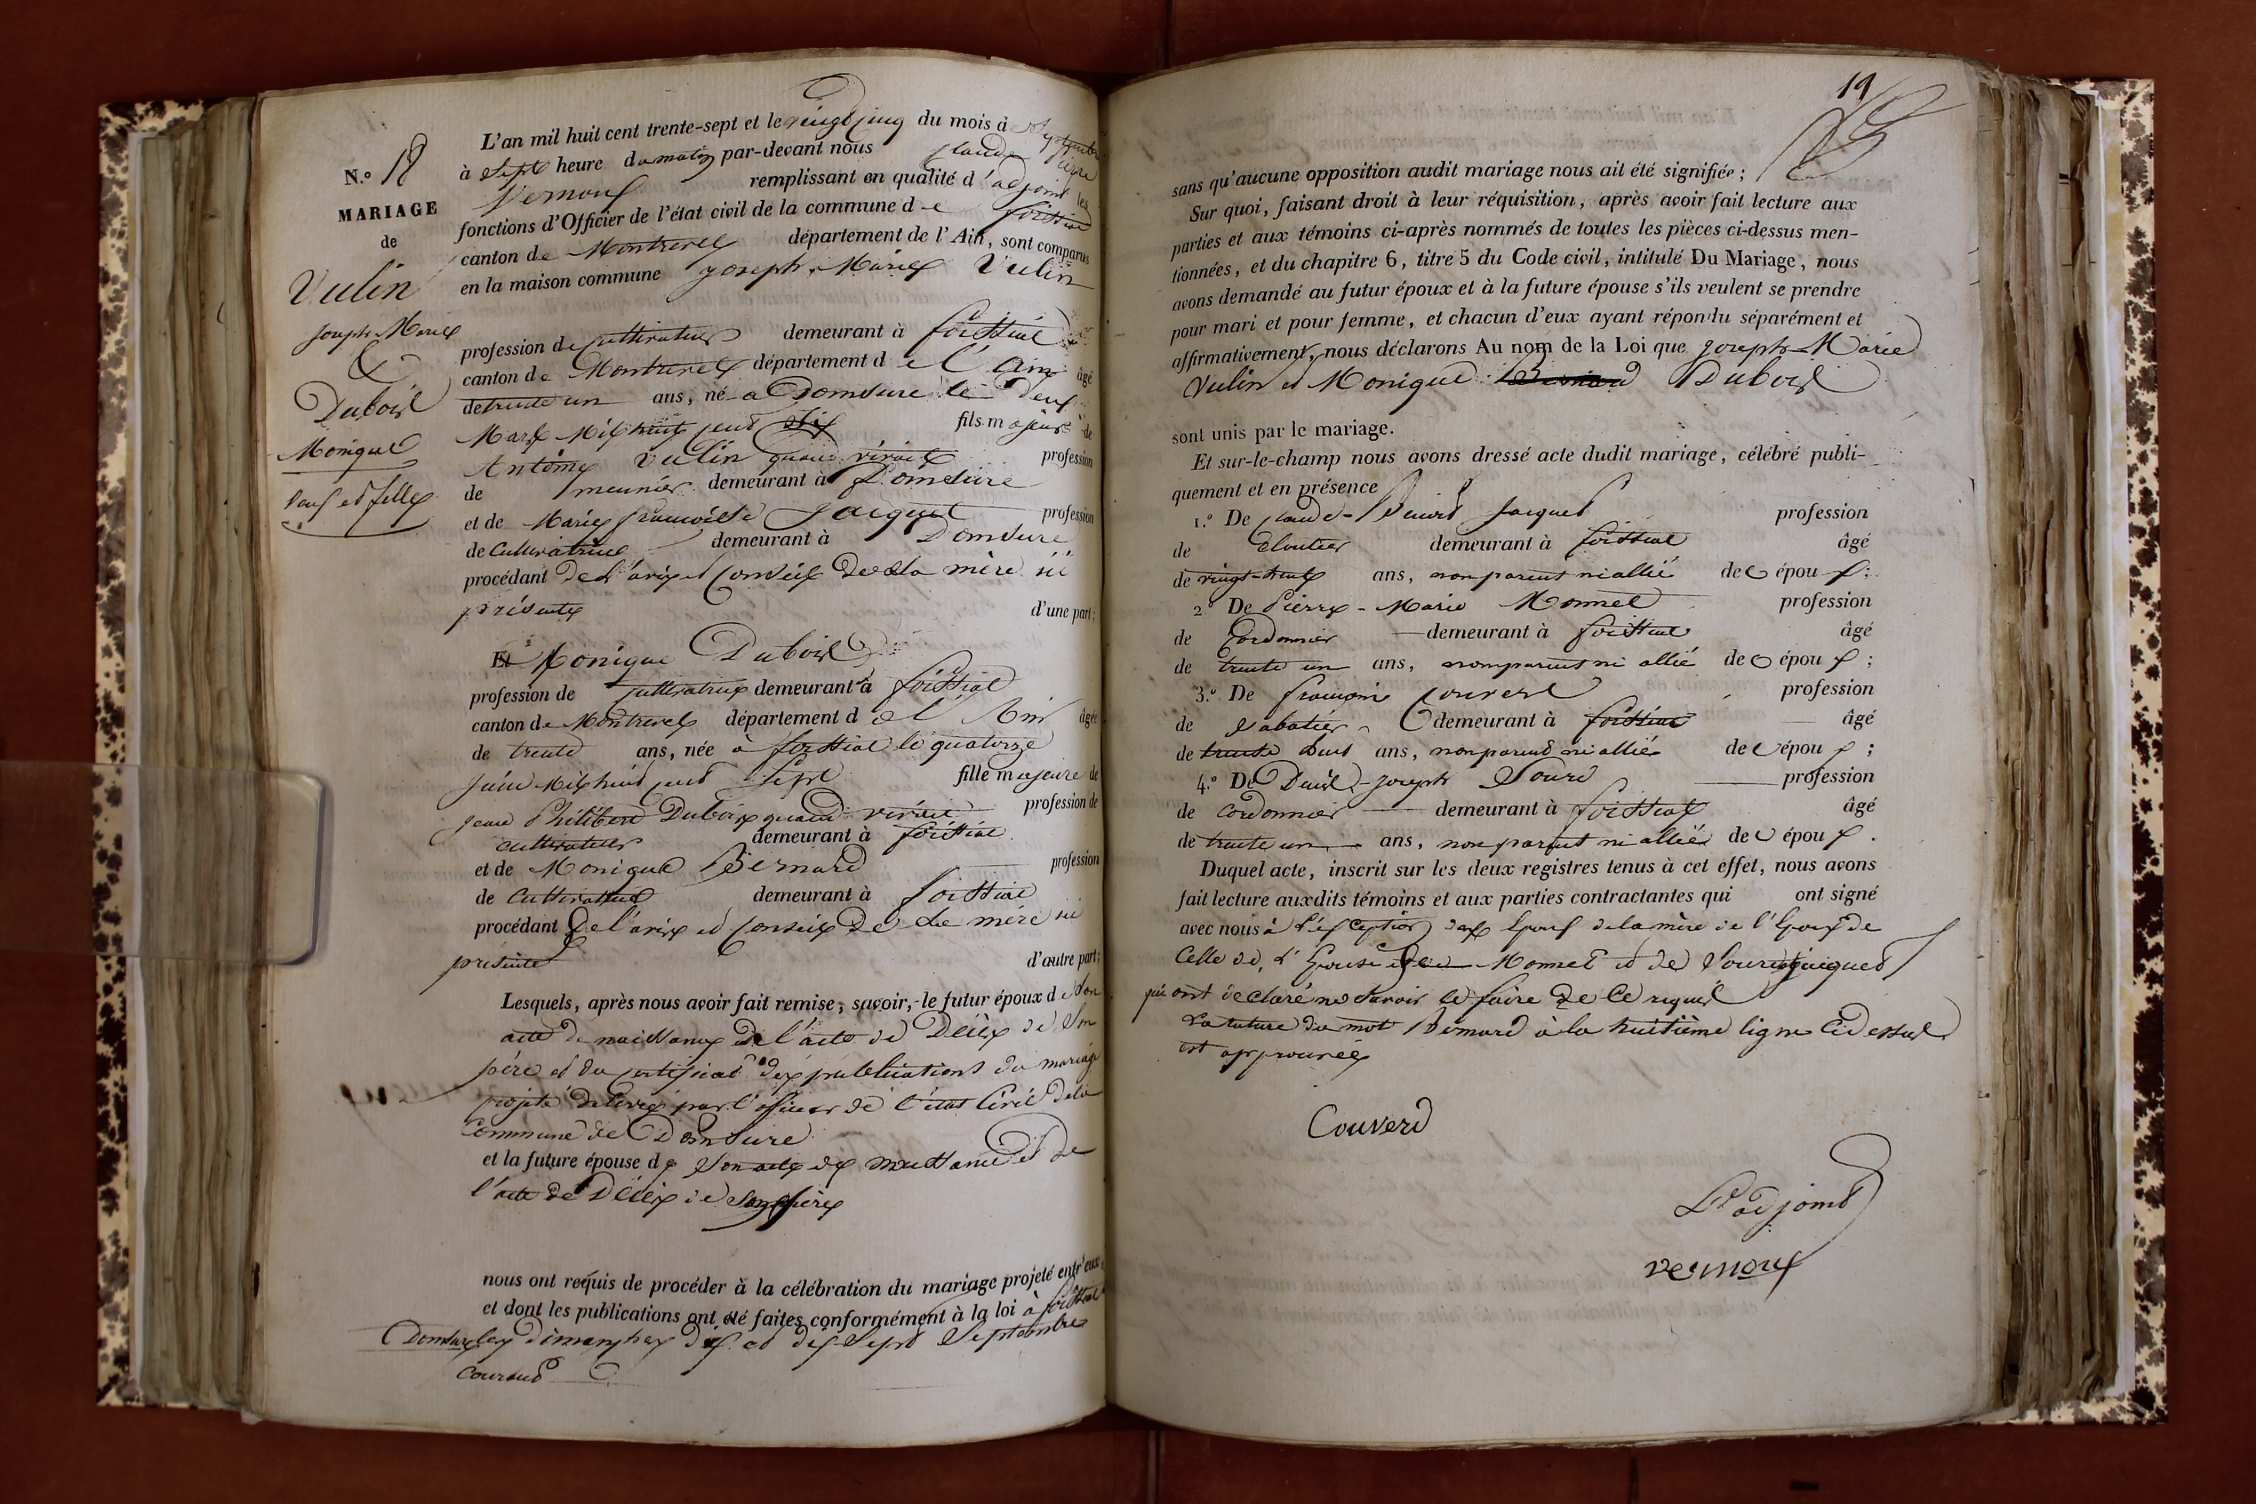 N.º 18
MARIAGE
de
Vulin
Joseph Marie
&
Dubois
Monique
L'an mil huit cent trente-sept et le vingt cinq du mois de Septembre
à Sept heure du matin par-devant nous Claude Pierre
Vernoux remplissant en qualité d'adjoint les
fonctions d'Officier de l'état civil de la commune de foissiat
canton de Montrevel département de l'Ain, sont comparus
en la maison commune Joseph Marie Vulin
profession de cultivateur demeurant à foissiat
canton de Montrevel département de l'Ain âgé
de trente un ans, né a Domsure le Deux
Mars Mil huit cent Six fils majeur de
Antoine Vulin quand vivait profession
de meunier demeurant à Domsure
et de Marie françoise Jacquet profession
de Cultivatrice demeurant à Domsure
procédant De l'avis et Conseil De la mère ici
présente d'une part;
Et Monique Dubois
profession de cultivatrice demeurant à foissiat
canton de Montrevel département de l'Ain âgée
de trente ans, née à foissiat le quatorze
Juin Mil huit cent Sept fille majeure de
Jean Philibert Dubois quand vivait profession de
cultivateur demeurant à foissiat
et de Monique Bernard profession
de Cultivatrice demeurant à foissiat
procédant De l'avis et Conseil De La mère ici
présente d'autre part;
Lesquels, après nous avoir fait remise, savoir, le futur époux de Son
acte de naissance de l'acte de Décès de Son
père et du certificat des publications du mariage
projeté délivré par l'officier de l'état Civil de la
Commune de Domsure
et la future épouse de Son acte de naissance et de
l'acte de Décès de Son père
nous ont requis de procéder à la célébration du mariage projeté entr'eux
et dont les publications ont été faites conformément à la loi à foissiat
Domsure les dimanches dix et dix Sept Septembre
Courant
19
sans qu'aucune opposition audit mariage nous ait été signifiée;
Sur quoi, faisant droit à leur réquisition, après avoir fait lecture aux
parties et aux témoins ci-après nommés de toutes les pièces ci-dessus men-
tionnées, et du chapitre 6, titre 5 du Code civil, intitulé Du Mariage, nous
avons demandé au futur époux et à la future épouse s'ils veulent se prendre
pour mari et pour femme, et chacun d'eux ayant répondu séparément et
affirmativement, nous déclarons Au nom de la Loi que Joseph-Marie
Vulin et Monique Bernard Dubois
sont unis par le mariage.
Et sur-le-champ nous avons dressé acte dudit mariage, célébré publi-
quement et en présence
1.º De Claude-Benoit Jacques profession
de Cloutier demeurant à foissiat âgé
de vingt-huit ans, non parent ni allié des époux;
2.º De Pierre-Marie Monnet profession
de Cordonnier demeurant à foissiat âgé
de trente un ans, non parent ni allié des époux;
3.º De françois Couvert profession
de Sabotier demeurant à foissiat âgé
de trente huit ans, non parent ni allié des époux;
4.º De Denis-Joseph Sourd profession
de Cordonnier demeurant à foissiat âgé
de trente un ans, non parent ni allié des époux.
Duquel acte, inscrit sur les deux registres tenus à cet effet, nous avons
fait lecture auxdits témoins et aux parties contractantes qui ont signé
avec nous à l'exception des Epoux de la mère de l'Epoux de
Celle de l'Epouse de Monnet et de Sourd Jacques
qui ont déclaré ne Savoir le faire de Ce requis
La rature du mot Bernard à la huitième ligne Ci dessus
est approuvée
Couvert
L'adjoint
Vernoux